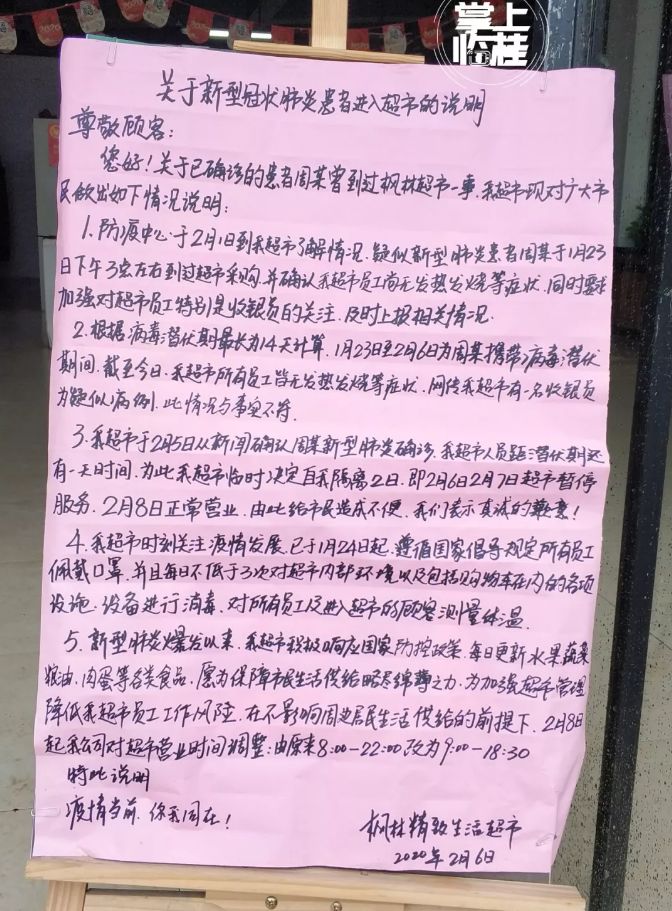 掌上
临桂
关于新型冠状肺炎患者进入超市的说明
尊敬顾客：
您好！关于已确诊的患者周某曾到过枫林超市一事，我超市现对广大市
民做出如下情况说明：
1.防疫中心于2月1日到我超市了解情况，疑似新型肺炎患者周某于1月23
日下午3点左右到过超市采购，并确认我超市员工尚无发热发烧等症状，同时要求
加强对超市员工特别是收银员的关注，及时上报相关情况。
2.根据病毒潜伏期最长为14天计算，1月23日至2月6日为周某携带病毒潜伏
期间，截至今日，我超市所有员工皆无发热发烧等症状，网传我超市有一名收银员
为疑似病例，此情况与事实不符。
3.我超市于2月5日从新闻确认周某新型肺炎确诊，我超市人员距潜伏期还
有一天时间，为此我超市临时决定自我隔离2日，即2月6日2月7日超市暂停
服务，2月8日正常营业，由此给市民造成不便，我们表示真诚的歉意！
4.我超市时刻关注疫情发展，已于1月24日起，遵循国家倡导规定所有员工
佩戴口罩，并且每日不低于3次对超市内部环境以及包括购物车在内的各项
设施、设备进行消毒，对所有员工及进入超市的顾客测量体温。
5.新型肺炎爆发以来，我超市积极响应国家防控政策，每日更新水果蔬菜
粮油、肉蛋等各类食品，愿为保障市民生活供给略尽绵薄之力，为加强超市管理
降低我超市员工工作风险，在不影响周边居民生活供给的前提下，2月8日
起我公司对超市营业时间调整：由原来8:00-22:00改为9:00-18:30
特此说明
疫情当前，你我同在！
枫林精致生活超市
2020年2月6日